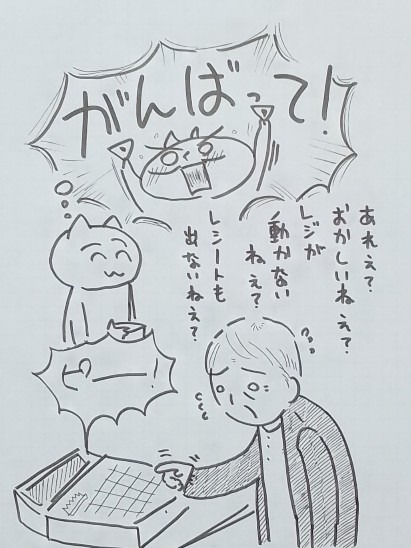 がんばって!
あれぇ?
おかしいねぇ?
レジが
動かない
ねぇ?
レシートも
出ないねぇ?